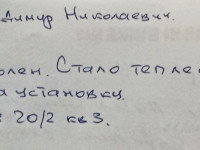 Димур Николаевич.
олен. Стало тепле
а установку.
20/2 кв 3.